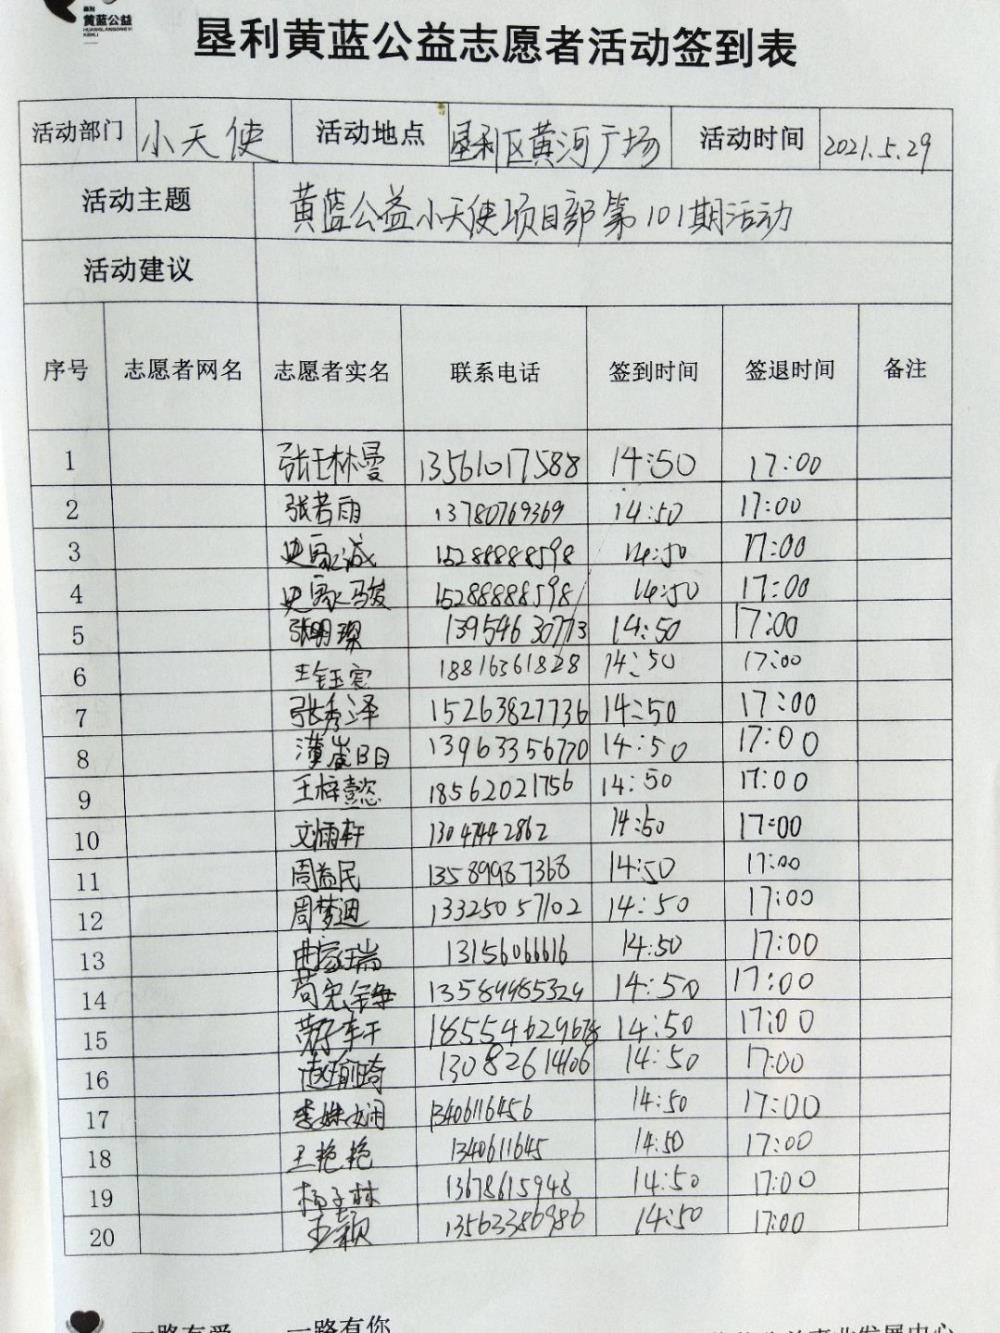 黄蓝公益
垦利黄蓝公益志愿者活动签到表
活动部门 小天使 活动地点 垦利区黄河广场 活动时间 2021.5.29
活动主题 黄蓝公益小天使项目部第101期活动
活动建议
序号 志愿者网名 志愿者实名 联系电话 签到时间 签退时间 备注
1 张王林曼 13561017588 14:50 17:00
2 张若雨 13780769369 14:50 17:00
3 史家诚 15288888598 14:50 17:00
4 史家骏 15288888598 14:50 17:00
5 张明琛 13954630773 14:50 17:00
6 王钰宸 18816361828 14:50 17:00
7 张秀泽 15263827736 14:50 17:00
8 13963356770 14:50 17:00
9 王梓懿 18562021756 14:50 17:00
10 文炳轩 13047442862 14:50 17:00
11 周益民 13589987368 14:50 17:00
12 周梦迪 13325057102 14:50 17:00
13 曲家瑞 13156066616 14:50 17:00
14 13589985324 14:50 17:00
15 18554629678 14:50 17:00
16 赵瑜琦 13082614406 14:50 17:00
17 李姝娴 13406116456 14:50 17:00
18 王艳艳 1340611645 14:50 17:00
19 杨子林 13678615948 14:50 17:00
20 王颖 13562386986 14:50 17:00
一路有爱 一路有你